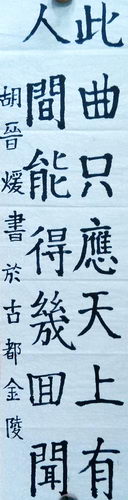 此曲只應天上有
人間能得幾回聞
胡晉煖書於古都金陵